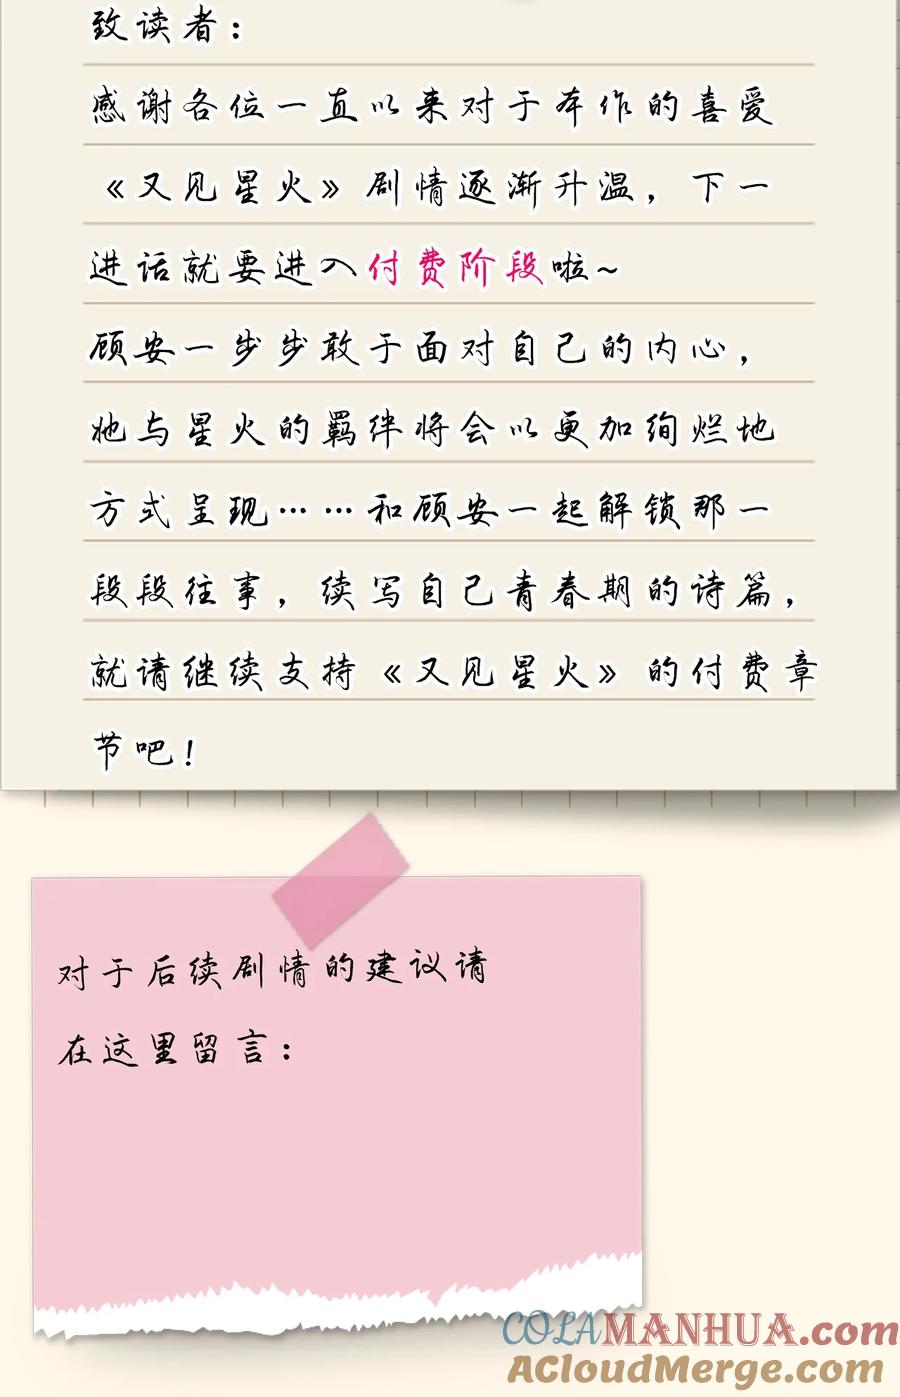 致读者：
感谢各位一直以来对于本作的喜爱
《又见星火》剧情逐渐升温，下一
进话就要进入付费阶段啦~
顾安一步步敢于面对自己的内心，
她与星火的羁绊将会以更加绚烂地
方式呈现……和顾安一起解锁那一
段段往事，续写自己青春期的诗篇，
就请继续支持《又见星火》的付费章
节吧！
对于后续剧情的建议请
在这里留言：
COLAMANHUA.com
ACloudMerge.com